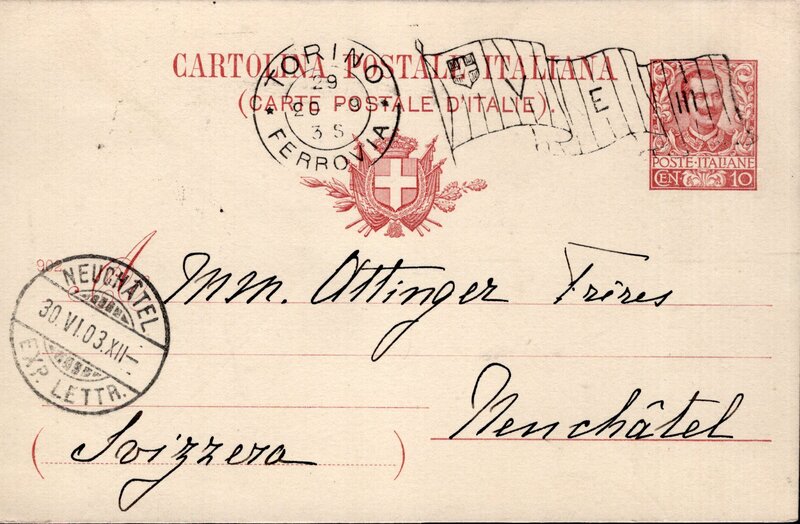 CARTOLINA POSTALE ITALIANA
(CARTE POSTALE D'ITALIE).
TORINO
29
3 S
FERROVIA
V E III
POSTE·ITALIANE
CEN· 10
902
A MM. Attinger Frères
NEUCHÂTEL
30.VI.03.XII-
EXP. LETTR.
Neuchâtel
(Svizzera)